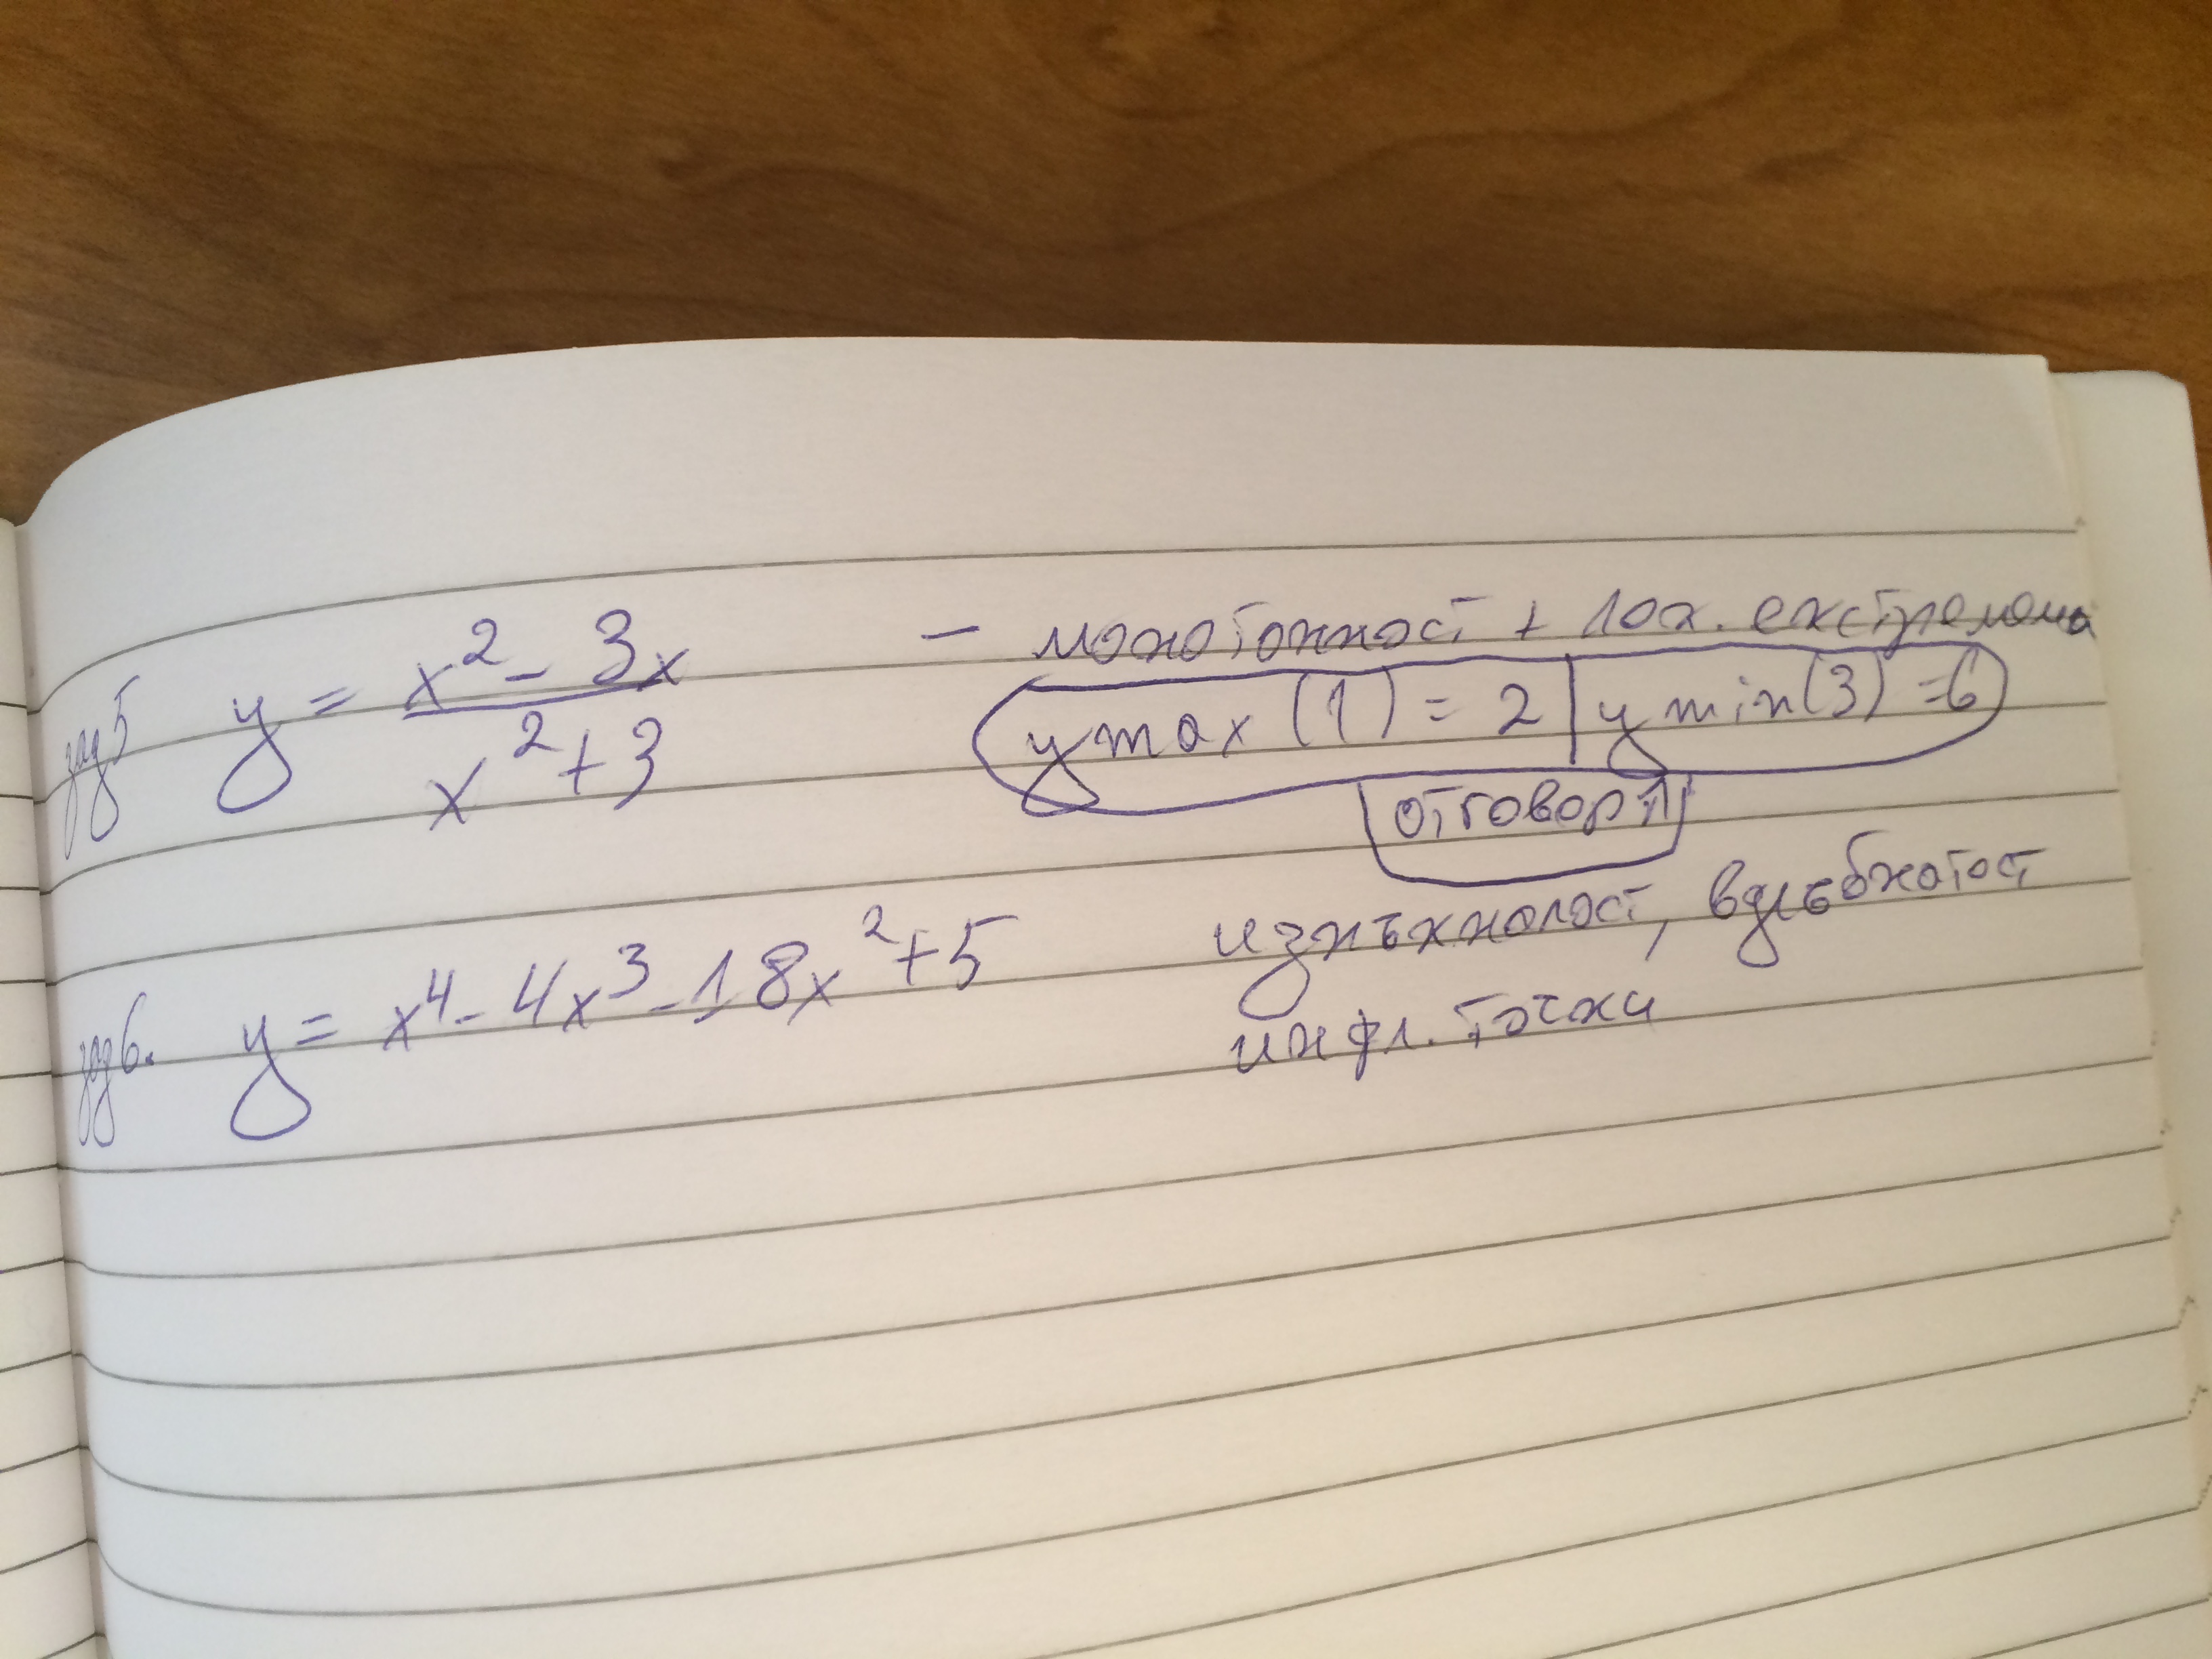 зад5 y = x² - 3x / x² + 3 - монотонност + лок. екстремома
y max (1) = 2 | y min (3) = 6
отговори
зад6. y = x⁴ - 4x³ - 18x² + 5 изпъкналост, вдлъбнатост
инфл. точки